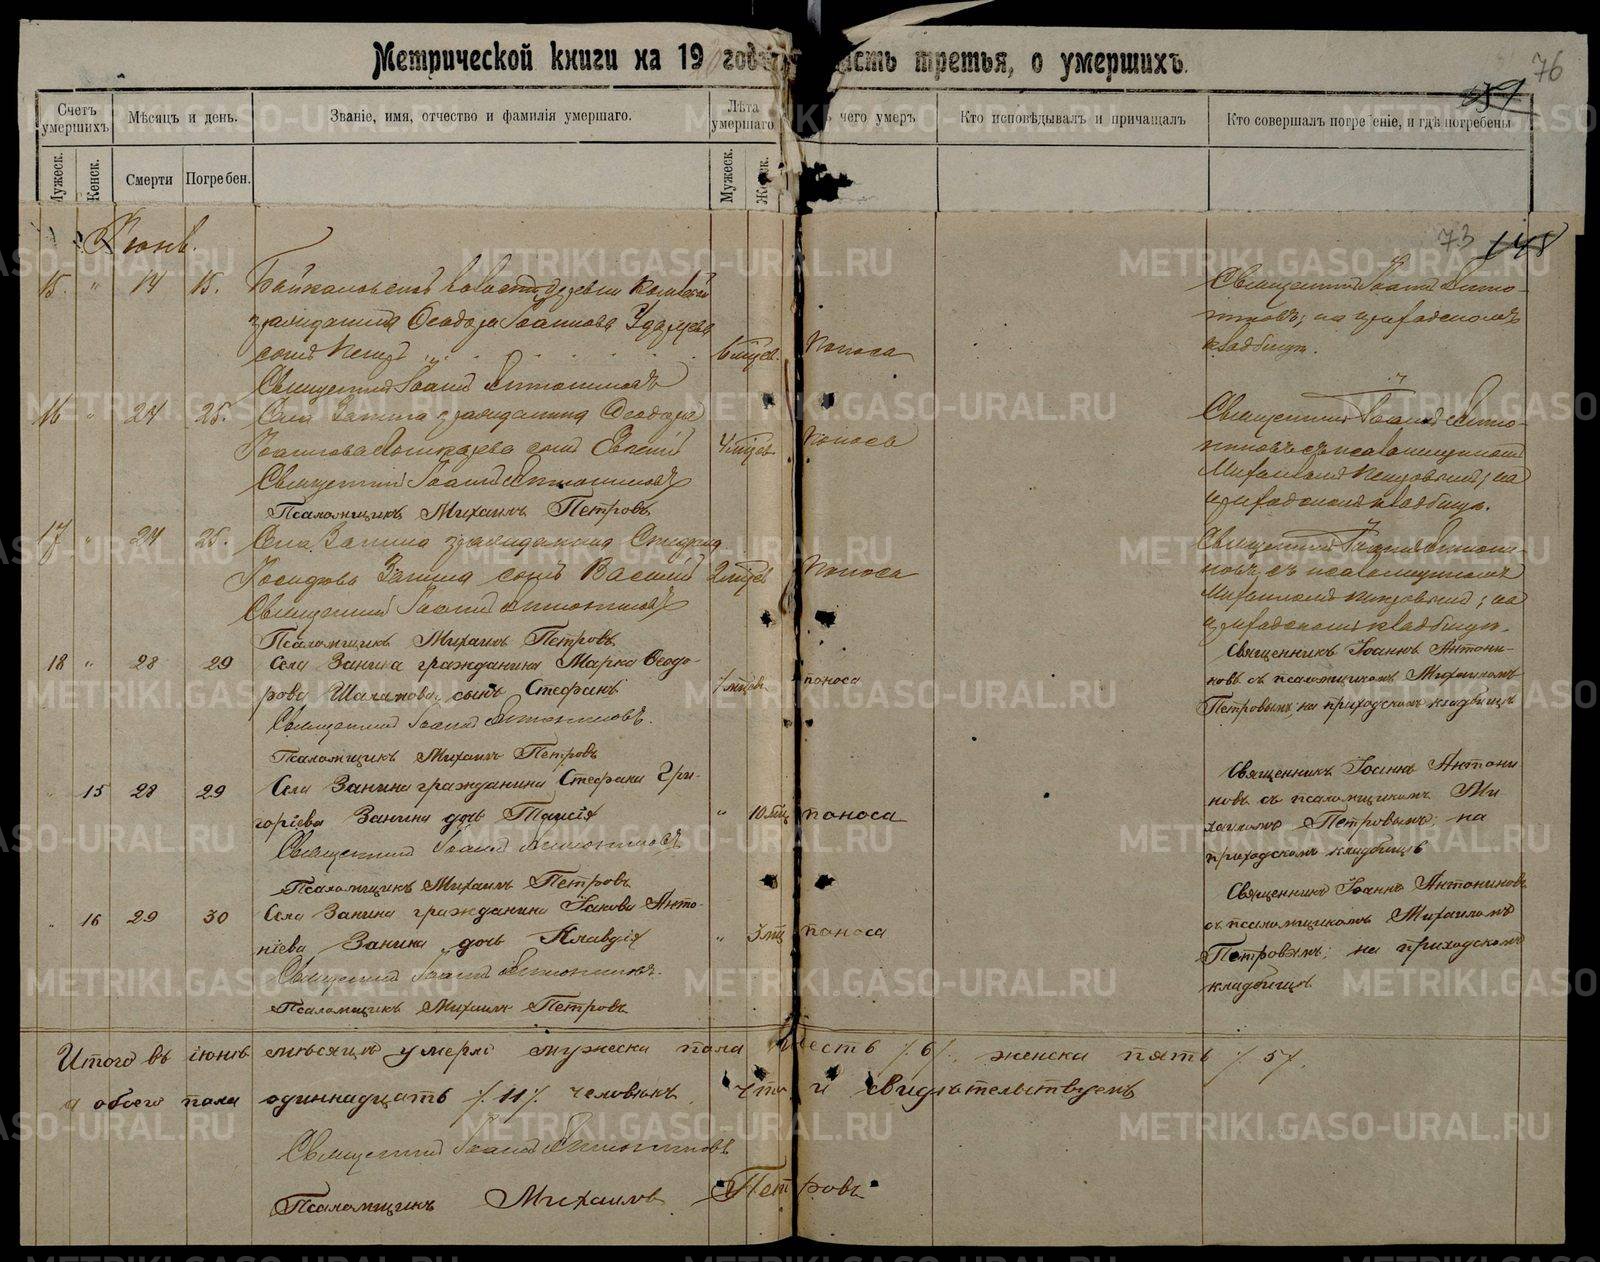 Метрической книги на 19 годъ часть третья, о умершихъ.
76
Счетъ умершихъ.
Мѣсяцъ и день.
Званіе, имя, отчество и фамилія умершаго.
Лѣта умершаго.
чего умеръ
Кто исповѣдывалъ и причащалъ
Кто совершалъ погребеніе, и гдѣ погребены
Мужеск.
Женск.
Смерти
Погребен.
Мужеск.
Женск.
73 148
Іюнь.
15. " 14 15. Байкаловской волости деревни
гражданина Ѳеодора Іоаннова
сынъ 6 мцев. поноса
Священникъ Іоаннъ Антони-
новъ; на приходскомъ
кладбищѣ.
Священникъ Іоаннъ Антониновъ
16 " 24 25. Села Занина гражданина Ѳеодора
Іоаннова сынъ Евгеній 4 мцев. поноса
Священникъ Іоаннъ Антони-
новъ съ псаломщикомъ
Михаиломъ Петровымъ; на
приходскомъ кладбищѣ.
Священникъ Іоаннъ Антониновъ
Псаломщикъ Михаилъ Петровъ
17 " 24 25. Села Занина гражданина
Іосифова Занина сынъ Василій 2 мцев поноса
Священникъ Іоаннъ Антони-
новъ съ псаломщикомъ
Михаиломъ Петровымъ; на
приходскомъ кладбищѣ.
Священникъ Іоаннъ Антониновъ
Псаломщикъ Михаилъ Петровъ
18 " 28 29 Села Занина гражданина Марка Ѳеодо-
рова Шаламова сынъ Стефанъ мцев поноса
Священникъ Іоаннъ Антони-
новъ съ псаломщикомъ Михаиломъ
Петровымъ; на приходскомъ кладбищѣ
Священникъ Іоаннъ Антониновъ.
Псаломщикъ Михаилъ Петровъ
" 15 28 29 Села Занина гражданина Стефана Гри-
горіева Занина дочь Таисія " 10 мц поноса
Священникъ Іоаннъ Антони
новъ съ псаломщикомъ Ми
хаиломъ Петровымъ; на
приходскомъ кладбищѣ
Священникъ Іоаннъ Антониновъ
Псаломщикъ Михаилъ Петровъ
" 16 29 30 Села Занина гражданина Іакова Анто-
ніева Занина дочь Клавдія " 3 мц поноса
Священникъ Іоаннъ Антониновъ
съ псаломщикомъ Михаиломъ
Петровымъ; на приходскомъ
кладбищѣ
Священникъ Іоаннъ Антониновъ.
Псаломщикъ Михаилъ Петровъ
Итого въ іюнѣ мѣсяцѣ умерло мужеска пола шесть /.6/., женска пять /.5/.
а обоего пола одиннадцать /.11/. человѣкъ. Что и свидѣтельствуемъ
Священникъ Іоаннъ Антониновъ
Псаломщикъ Михаилъ Петровъ
METRIKI.GASO-URAL.RU